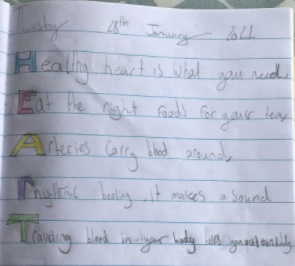 Tuesday 28th January 2021
Healthy heart is what you need,
Eat the right foods for your
Arteries carry blood around,
Rhythmic beating, it makes a sound
Traveling blood in your body